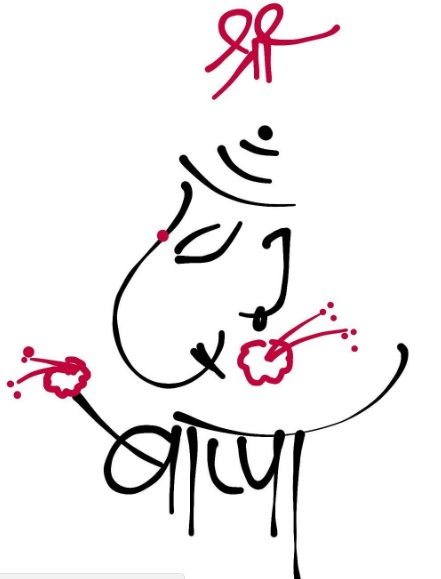 श्री
बाप्पा